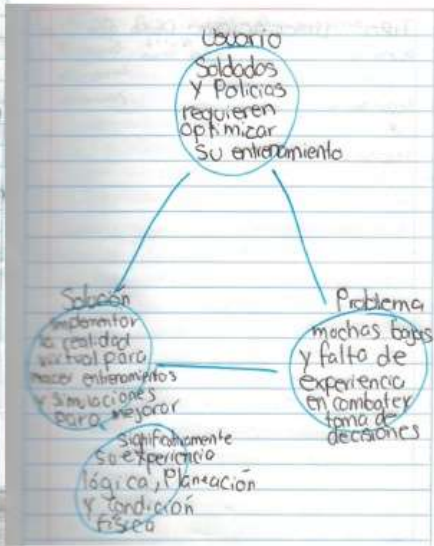 Usuario
Soldados
y Policias
requieren
optimizar
su entrenamiento
Solución
implementar
la realidad
virtual para
hacer entrenamientos
y simulaciones
para mejorar
significativamente
su experiencia
lógica, Planeación
y condición
física
Problema
muchas bajas
y falta de
experiencia
en combate y
toma de
decisiones